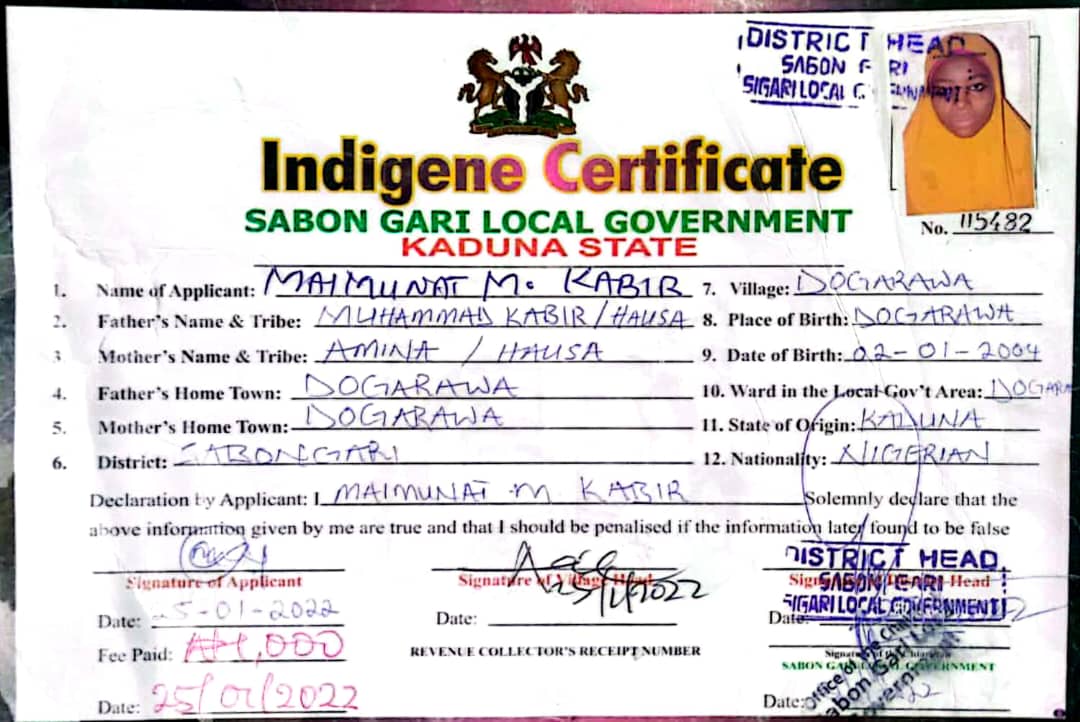 DISTRICT HEAD
SABON G RI
SIGARI LOCAL G
Indigene Certificate
SABON GARI LOCAL GOVERNMENT
KADUNA STATE
No. 115482
1. Name of Applicant: MAIMUNAT M. KABIR 7. Village: DOGARAWA
2. Father's Name & Tribe: MUHAMMAD KABIR / HAUSA 8. Place of Birth: DOGARAWA
3 Mother's Name & Tribe: AMINA / HAUSA 9. Date of Birth: 02-01-2004
4. Father's Home Town: DOGARAWA 10. Ward in the Local Gov't Area: DOGARA
5. Mother's Home Town: DOGARAWA 11. State of Origin: KADUNA
6. District: SABON GARI 12. Nationality: NIGERIAN
Declaration by Applicant: I MAIMUNAT M. KABIR Solemnly declare that the
above information given by me are true and that I should be penalised if the information later found to be false
DISTRICT HEAD
Signature of Applicant Signature of Village Head
25/1/2022
SIGARI LOCAL GOVERNMENT
Date: 25-01-2022 Date: Date:
Fee Paid: ₦1,000 REVENUE COLLECTOR'S RECEIPT NUMBER
SABON GARI LOCAL GOVERNMENT
Date: 25/01/2022 Date:
Office of the
Sabon Gari